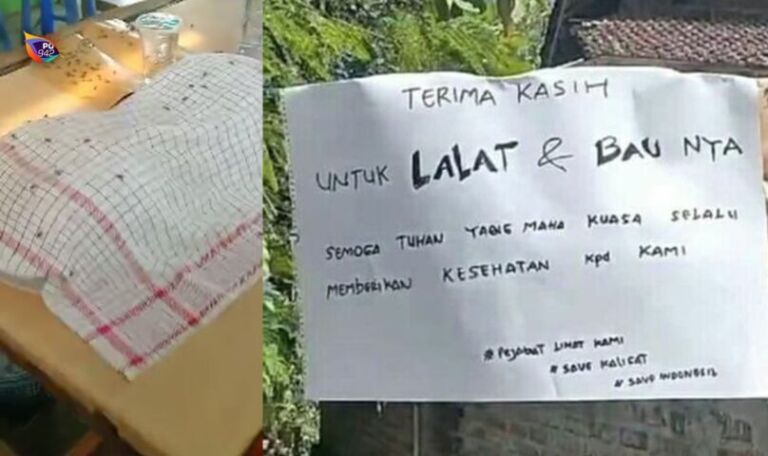 PG
942
TERIMA KASIH
UNTUK LALAT & BAU NYA
SEMOGA TUHAN YANG MAHA KUASA SELALU
MEMBERIKAN KESEHATAN Kpd KAMI
# PEJABAT LIHAT KAMI
# SAVE KALICAT
# SAVE INDONESIA